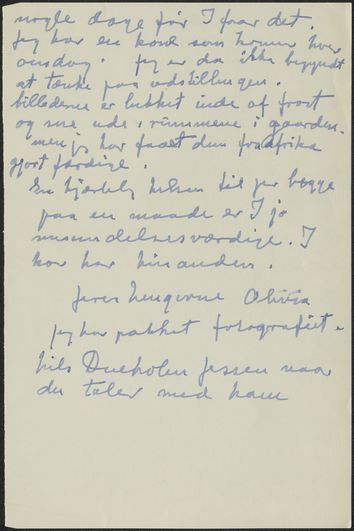 nogle dage før I faar det.
Jeg har en kone som kommer hver
onsdag. Jeg er da ikke begyndt
at tænke paa udstillingen.
billederne er lukket inde af frost
og sne ude i rummene i gaarden.
men jeg har faaet dem fra Afrika
gjort færdige.
En hjærtelig hilsen til jer begge
paa en maade er I jo
misundelsesværdige. I
har hinanden.
Jeres hengivne Olivia
jeg har pakket fotografiet.
hils Dueholm Jessen naar
du taler med ham